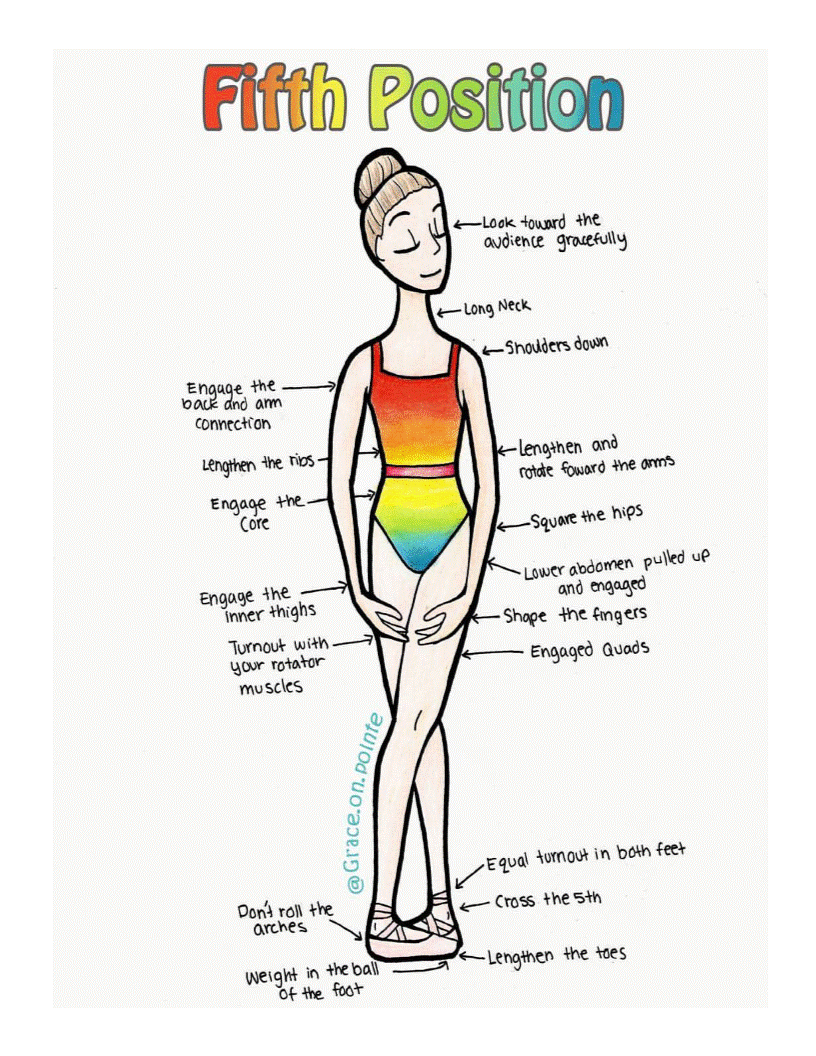 Fifth Position
Look toward the
audience gracefully
Long Neck
Shoulders down
Engage the
back and arm
connection
Lengthen the ribs
Lengthen and
rotate foward the arms
Engage the
Core
Square the hips
Lower abdomen pulled up
and engaged
Engage the
inner thighs
Shape the fingers
Turnout with
your rotator
muscles
Engaged Quads
@Grace.on.pointe
Equal turnout in both feet
Cross the 5th
Don't roll the
arches
Lengthen the toes
Weight in the ball
of the foot